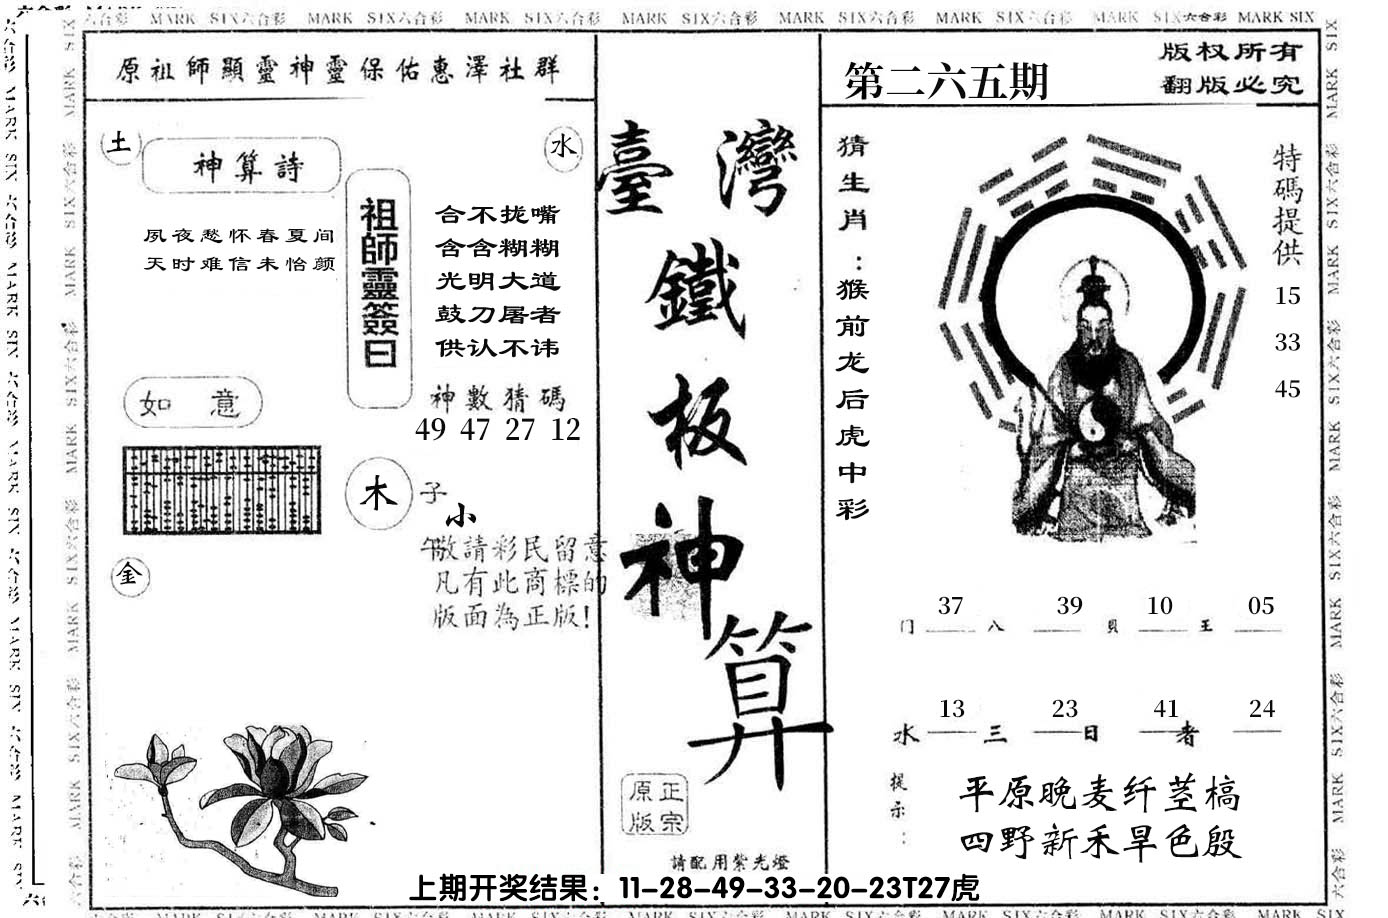 MARK SIX六合彩 MARK SIX六合彩 MARK SIX六合彩 MARK SIX六合彩 MARK SIX六合彩 MARK SIX六合彩 MARK SIX六合彩 MARK SIX
原祖師顯靈神靈保佑惠澤社群
土
神算詩
水
夙夜愁怀春夏间
天时难信未怡颜
祖師靈簽曰
合不拢嘴
含含糊糊
光明大道
鼓刀屠者
供认不讳
如 意
神數猜碼
49 47 27 12
木
子
小
午
敬請彩民留意
凡有此商標的
版面為正版!
金
臺灣
鐵
板
神
算
正宗
原版
請配用紫光燈
第二六五期
版权所有
翻版必究
猜生肖:猴前龙后虎中彩
特碼提供
15
33
45
37 39 10 05
门 八 貝 王
13 23 41 24
水 三 日 者
提示:
平原晚麦纤茎槁
四野新禾旱色殷
上期开奖结果：11-28-49-33-20-23T27虎